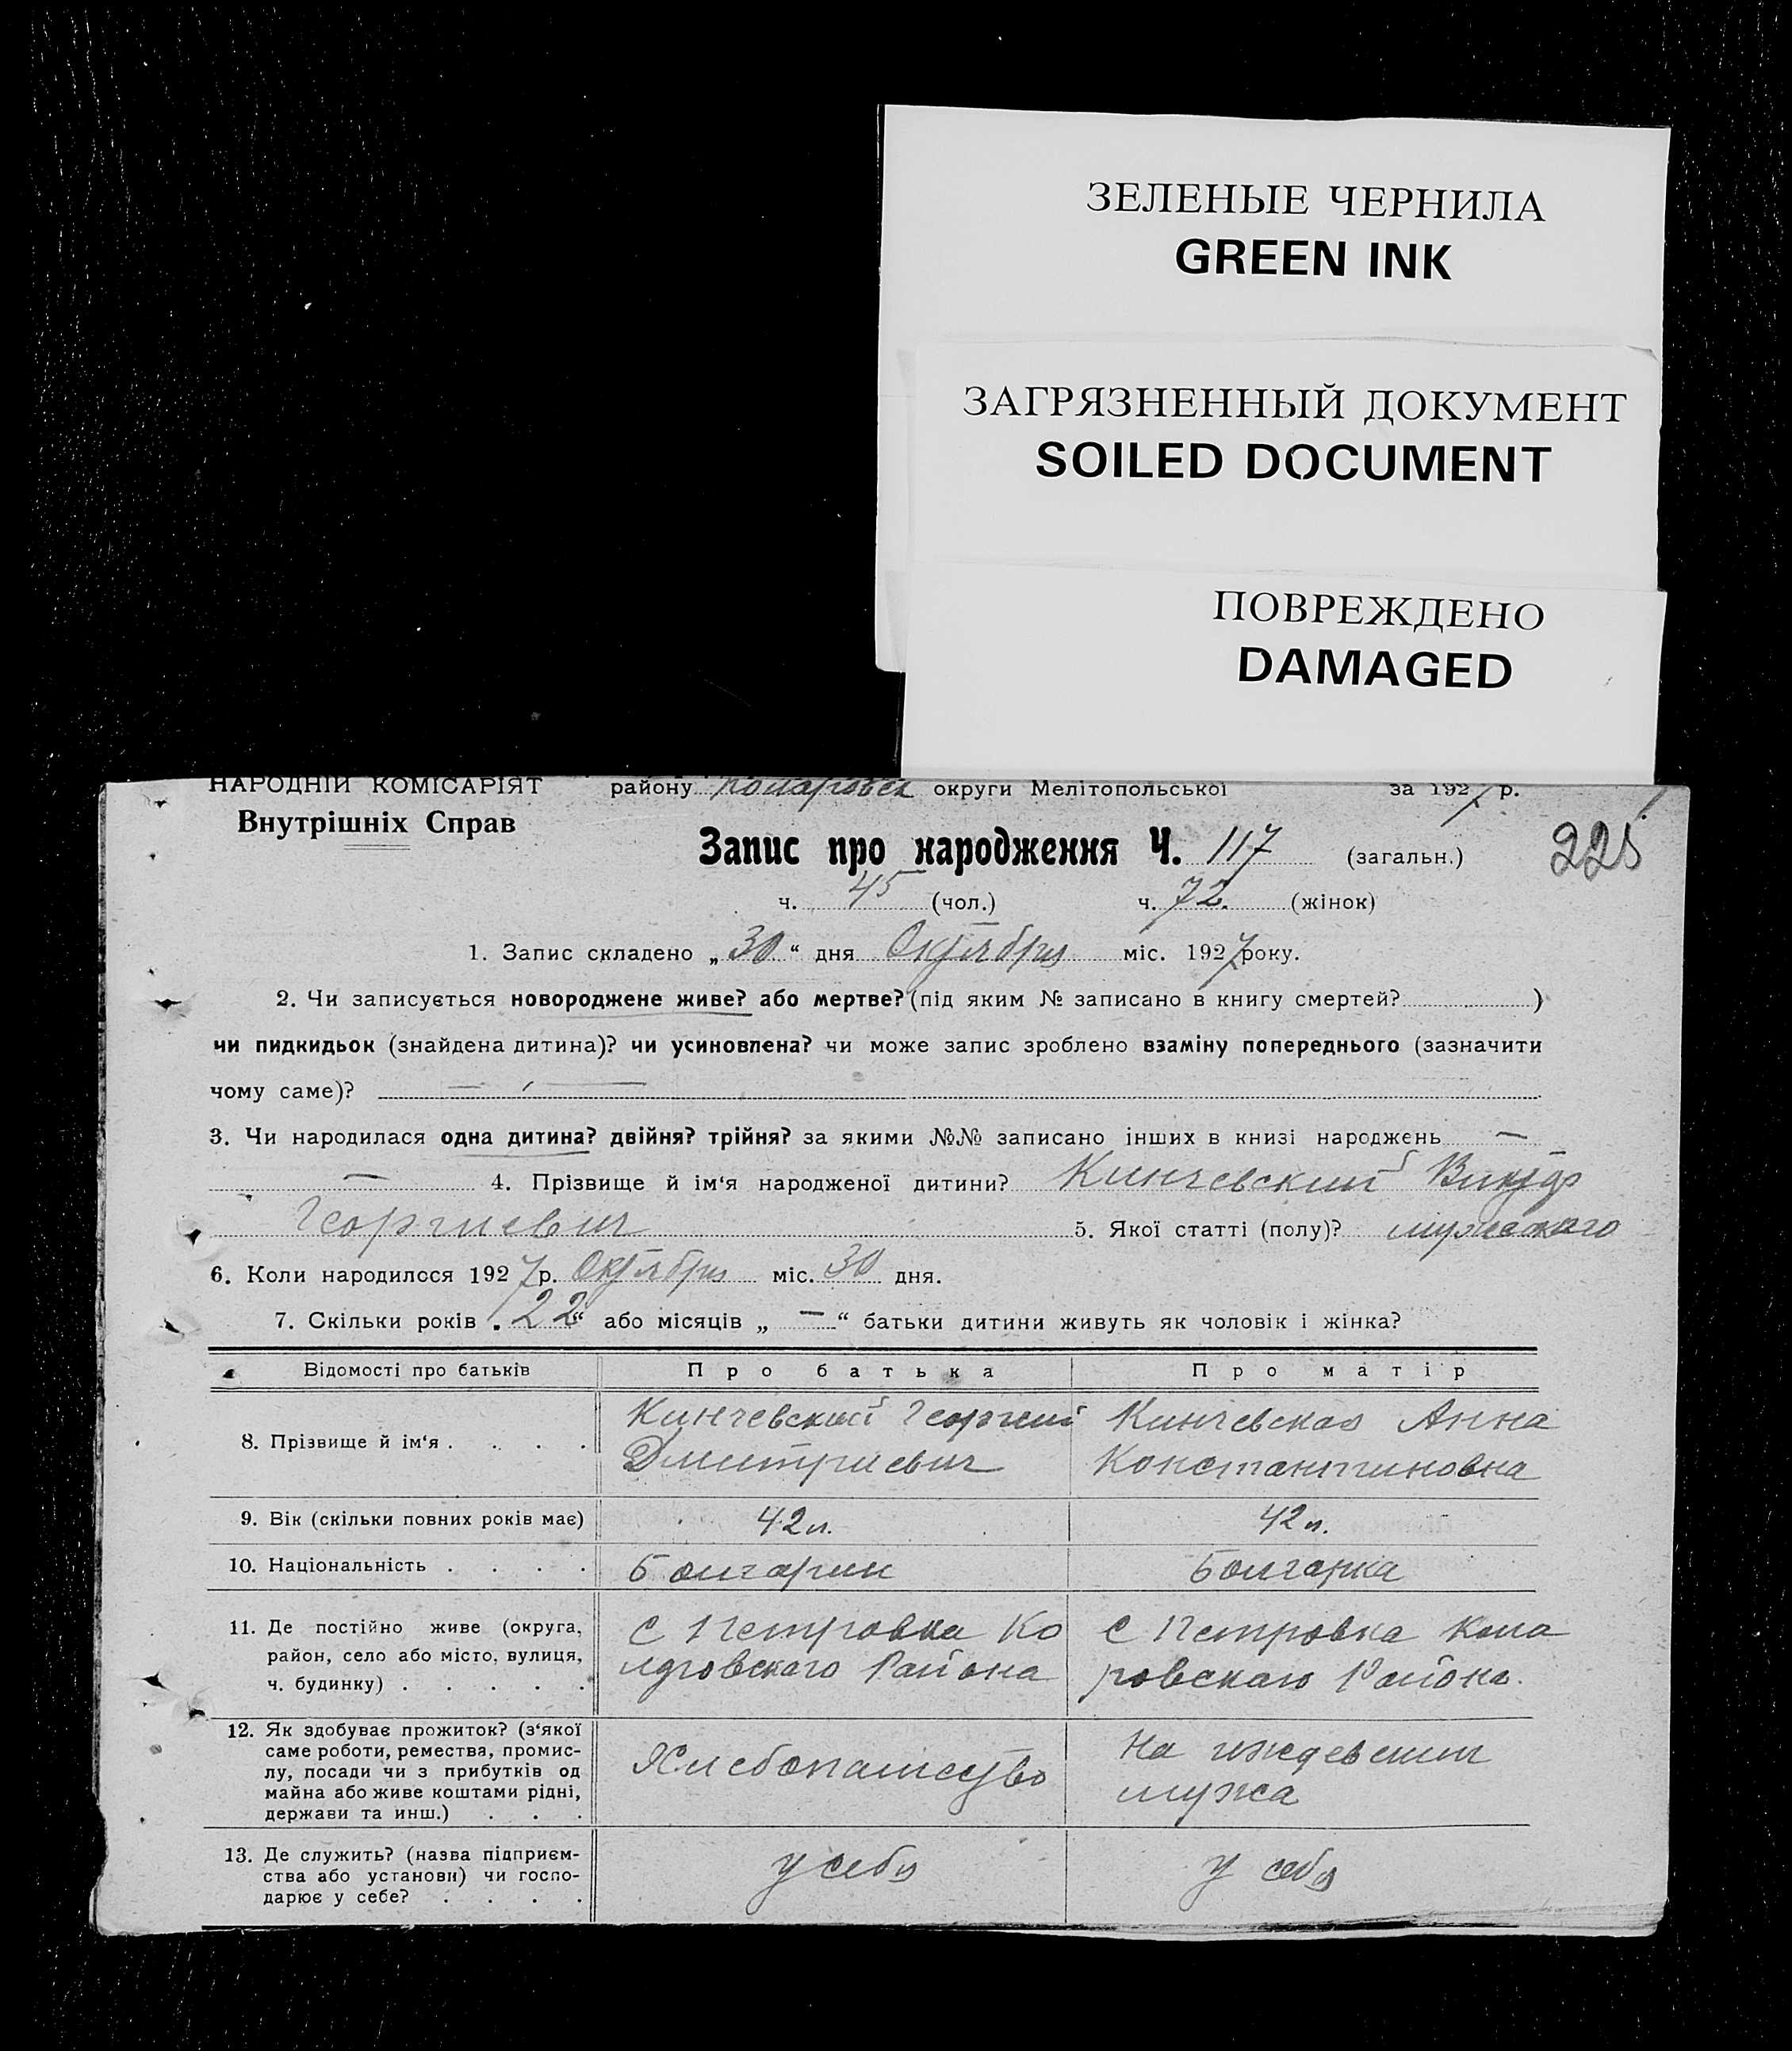 ЗЕЛЕНЫЕ ЧЕРНИЛА
GREEN INK
ЗАГРЯЗНЕННЫЙ ДОКУМЕНТ
SOILED DOCUMENT
ПОВРЕЖДЕНО
DAMAGED
НАРОДНІЙ КОМІСАРІЯТ району Коларовск округи Мелітопольської за 1927 р.
Внутрішніх Справ
Запис про народження Ч. 117 (загальн.) 225
ч. 45 (чол.) ч. 72. (жінок)
1. Запис складено „30“ дня Октября міс. 1927 року.
2. Чи записується новороджене живе? або мертве? (під яким № записано в книгу смертей? )
чи пидкидьок (знайдена дитина)? чи усиновлена? чи може запис зроблено взаміну попереднього (зазначити
чому саме)? —
3. Чи народилася одна дитина? двійня? трійня? за якими №№ записано інших в книзі народжень —
— 4. Прізвище й ім‘я народженої дитини? Кинчевский Виктор
Георгиевич 5. Якої статті (полу)? мужского
6. Коли народилося 1927 р. Октября міс. 30 дня.
7. Скільки років „22“ або місяців „ — “ батьки дитини живуть як чоловік і жінка?
Відомості про батьків Про батька Про матір
8. Прізвище й ім‘я . . . . Кинчевский Георгий Кинчевская Анна
Дмитриевич Константиновна
9. Вік (скільки повних років має) 42 л. 42 л.
10. Національність . . . . Болгарин Болгарка
11. Де постійно живе (округа, С Петровка Ко С Петровка Кола
район, село або місто, вулиця, ларовского Района ровского Района.
ч. будинку) . . . . .
12. Як здобуває прожиток? (з‘якої
саме роботи, ремества, промис- Хлебопашество На иждевении
лу, посади чи з прибутків од мужа
майна або живе коштами рідні,
держави та инш.) . . .
13. Де служить? (назва підприєм- у себя у себя
ства або установи) чи госпо-
дарює у себе? . . . .